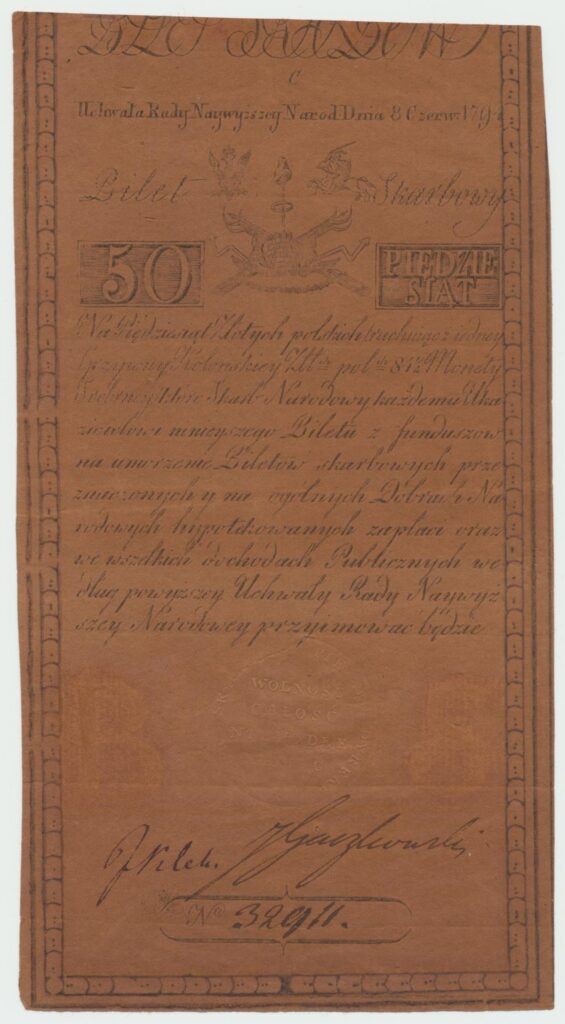 C
Uchwała Rady Naywyższey Narod: Dnia 8 Czerw: 1794
Bilet Skarbowy
50 PIĘDZIE
SIĄT
Na Piędziesiąt Złotych polskich rachuiąc z iedney
Grzywny Kolońskiey Zł: pol: 84½ Monety
Srebrney które Skarb Narodowy każdemu Uka
zicielowi ninieyszego Biletu z funduszow
na umorzenie Biletow skarbowych prze
znaczonych y na ogólnych Dobrach Na
rodowych hypotekowanych zapłaci oraz
we wszelkich dochodach Publicznych we
dług powyższey Uchwały Rady Naywyż
szey Narodowey przyimować będzie
WOLNOSC
CAŁOSC
No 32911.